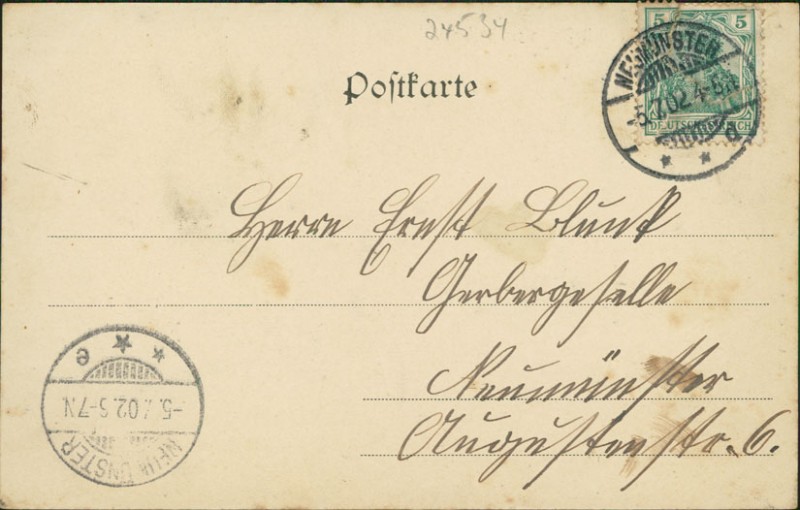 24534
5 5
NEUMÜNSTER
-5.7.02.4-5N
DEUTSCHES REICH
Postkarte
Herrn Ernst Blunk
Gerbergeselle
Neumünster
Augustenstr. 6.
e
-5.7.02.5-7N
NEUMÜNSTER